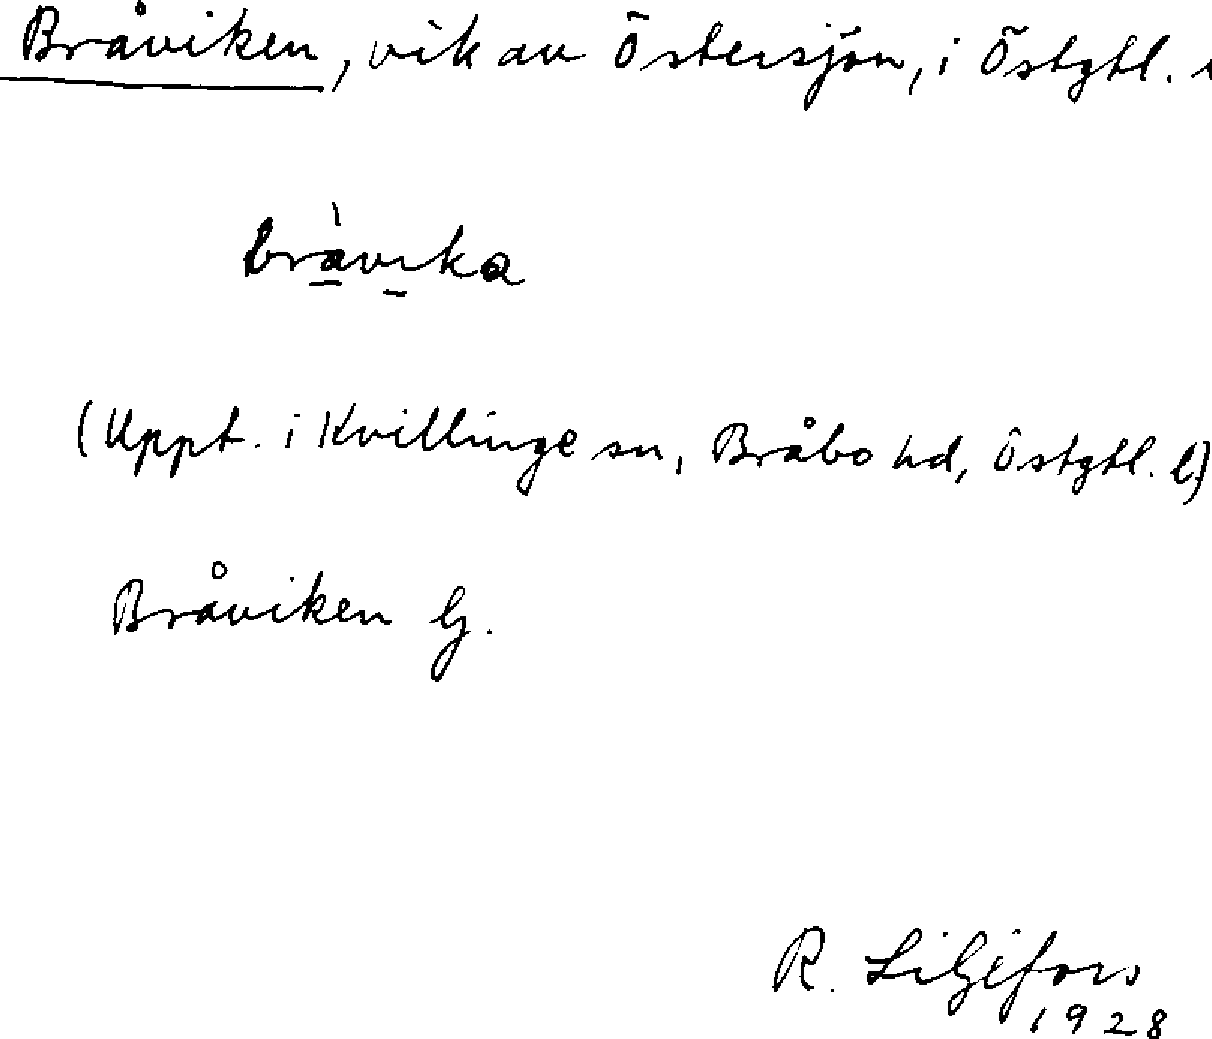 Bråviken, vik av Östersjön, i Östgtl.
bràvika
(Uppt. i Kvillinge sn, Bråbo hd, Östgtl. l)
Bråviken G.
R. Liljefors
1928